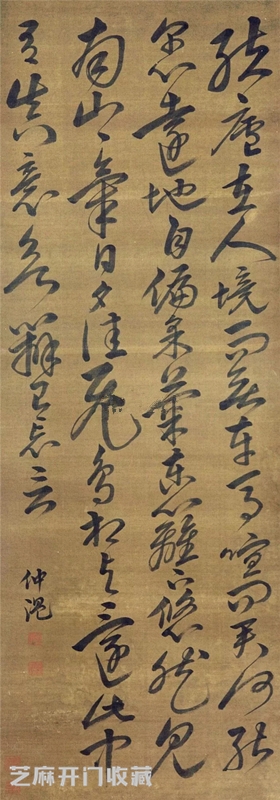 結廬在人境而無車馬喧問君何能
爾心遠地自偏采菊東籬下悠然見
南山〻氣日夕佳飛鳥相與還此中
有真意欲辯已忘言
仲
芝麻开门收藏